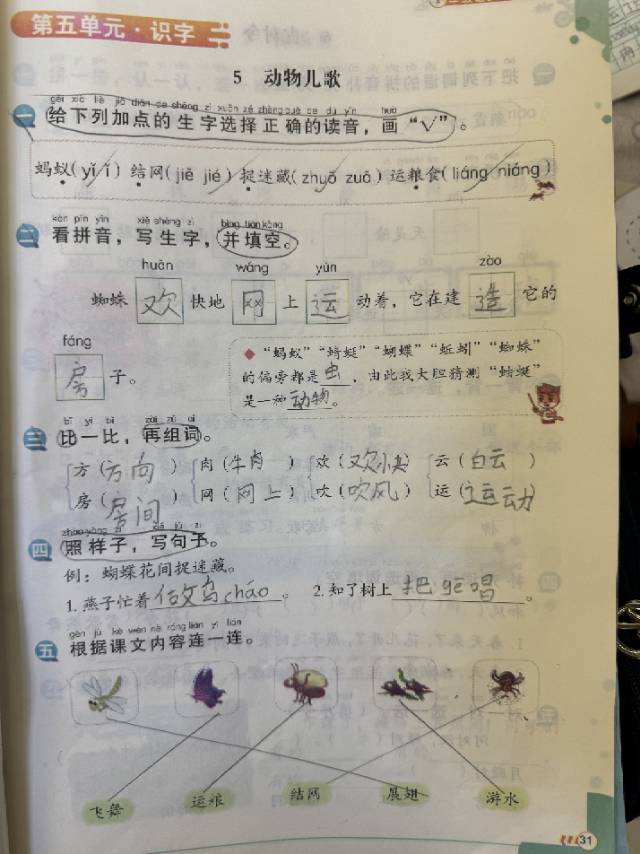 第五单元·识字
5 动物儿歌
gěi xià liè jiā diǎn de shēng zì xuǎn zé zhèng què de dú yīn huà
一 给下列加点的生字选择正确的读音，画“√”。
蚂蚁(yǐ ǐ) 结网(jiě jié) 捉迷藏(zhuō zuō) 运粮食(liáng niáng)
kàn pīn yīn xiě shēng zì bìng tián kòng
二 看拼音，写生字，并填空。
huān wǎng yùn zào
蜘蛛 欢 快地 网 上 运 动着，它在建 造 它的
fáng
房 子。
“蚂蚁”“蜻蜓”“蝴蝶”“蚯蚓”“蜘蛛”
的偏旁都是虫，由此我大胆猜测“蝌蚪”
是一种动物。
bǐ yi bǐ zài zǔ cí
三 比一比，再组词。
方(方向) 肉(牛肉) 欢(欢快) 云(白云)
房(房间) 网(网上) 吹(吹风) 运(运动)
zhào yàng zi xiě jù zi
四 照样子，写句子。
例：蝴蝶花间捉迷藏。
1. 燕子忙着做鸟cháo。 2. 知了树上把gē唱。
gēn jù kè wén nèi róng lián yì lián
五 根据课文内容连一连。
飞舞 运粮 结网 展翅 游水
31